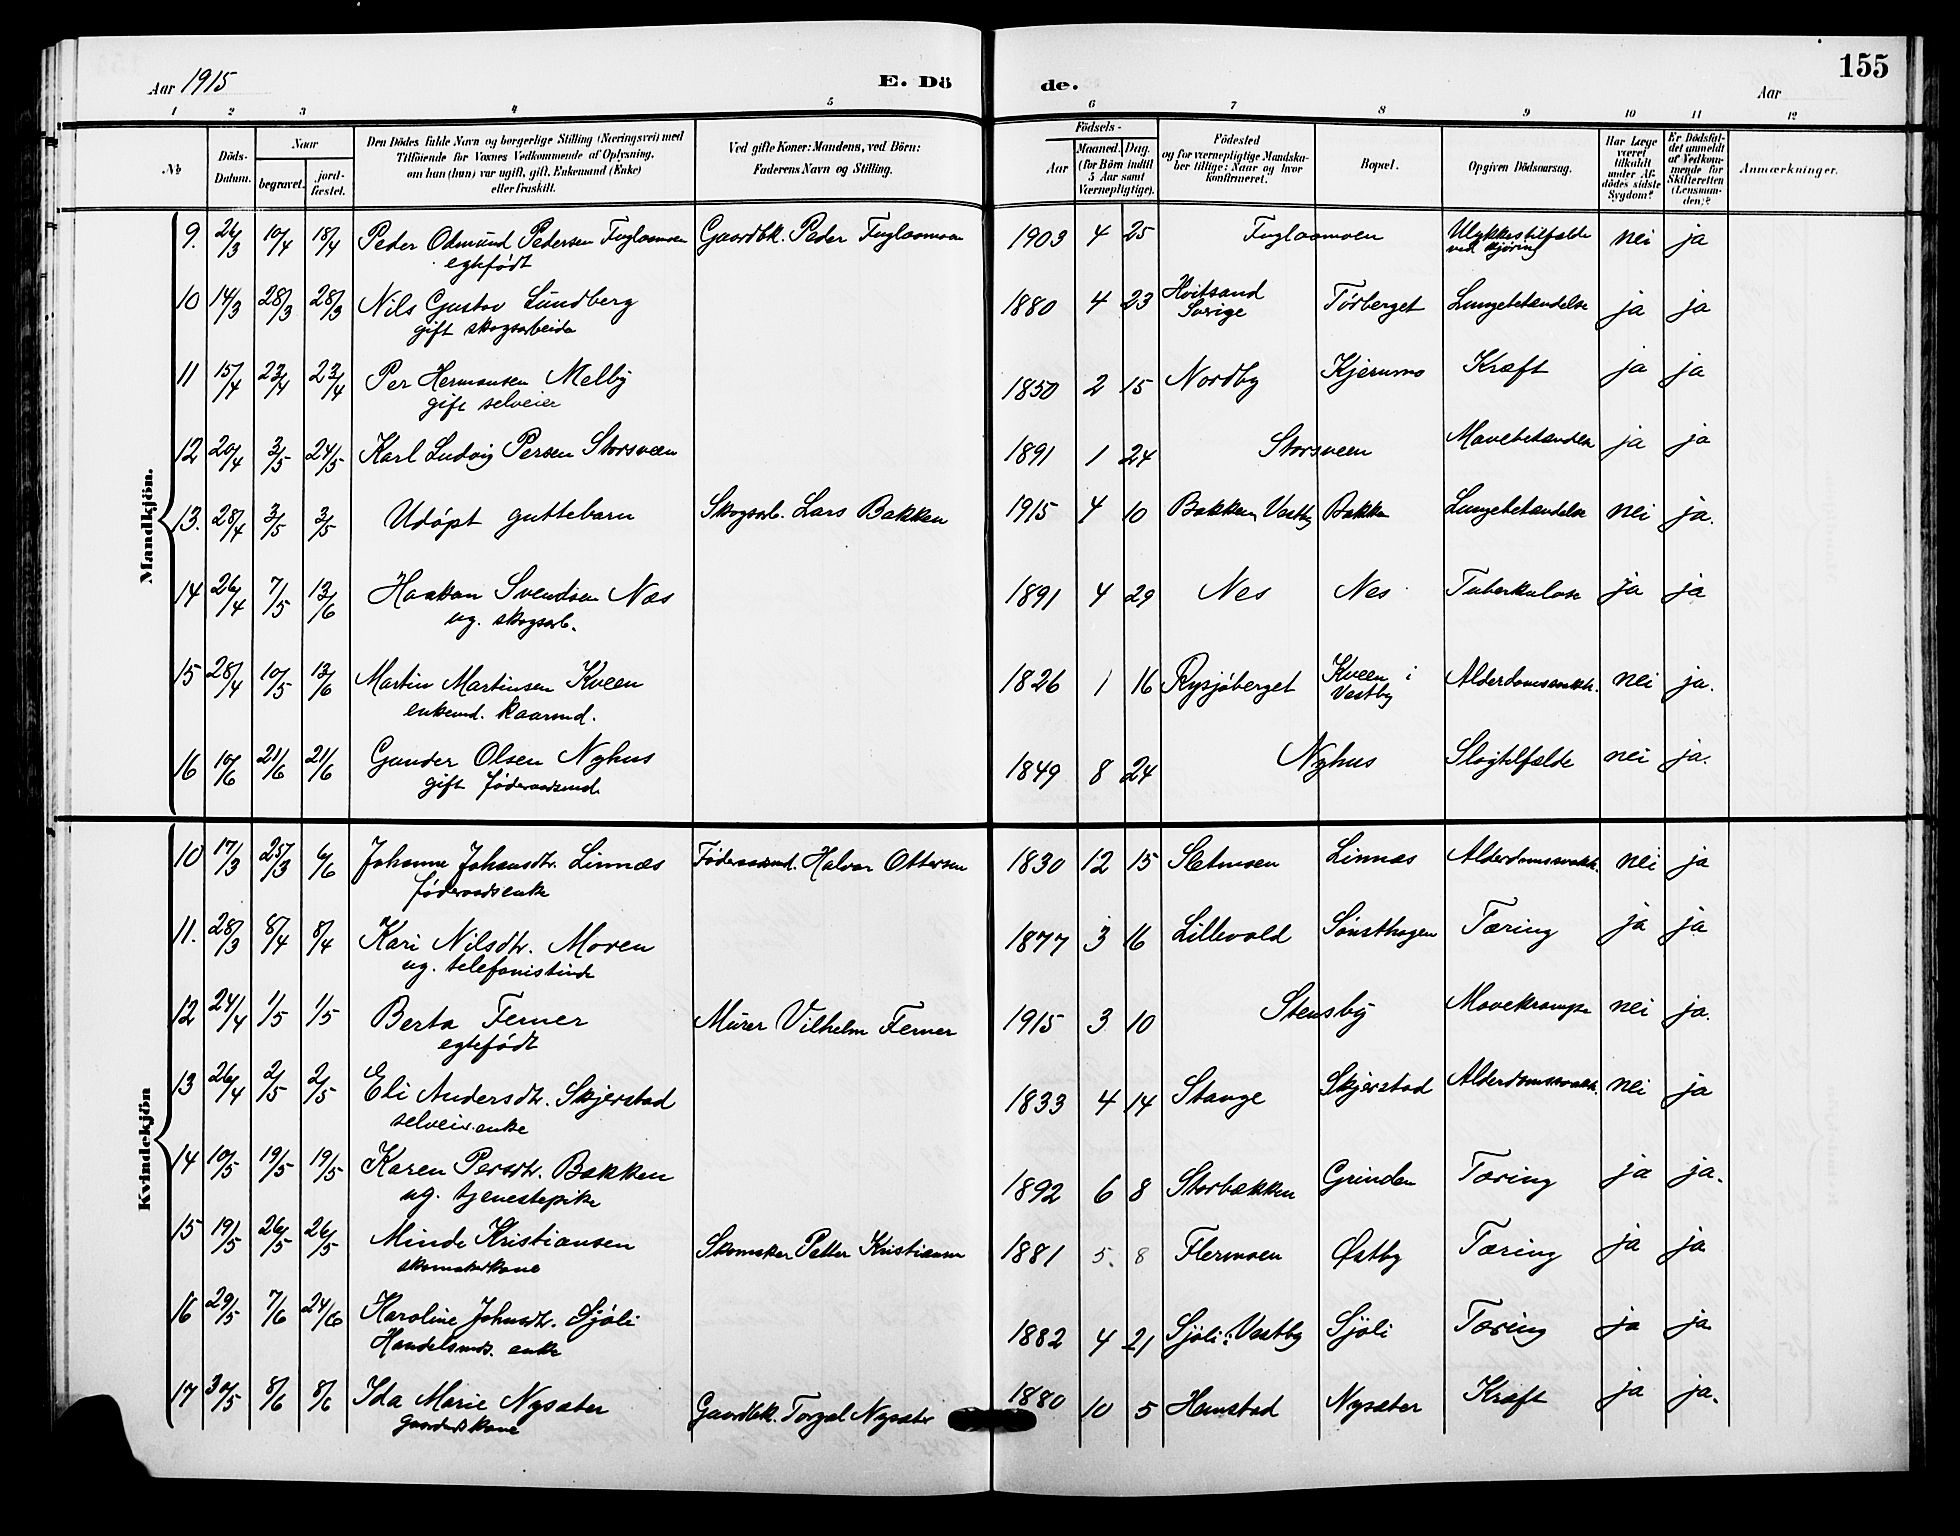 155
Aar 1915
E. Dö
de.
Aar
1 2 3 4 5 6 7 8 9 10 11 12
№
Döds-Datum.
Naar
begravet.
jord-fæstet.
Den Dödes fulde Navn og borgerlige Stilling (Næringsvei) med
Tilföiende for Voxnes Vedkommende af Oplysning,
om han (hun) var ugift, gift, Enkemand (Enke)
eller fraskilt.
Ved gifte Koner: Mandens, ved Börn:
Faderens Navn og Stilling.
Födsels-
Aar
Maaned. Dag.
(for Börn indtil
5 Aar samt
Værnepligtige).
Födested
og for værnepligtige Mandska-
ber tillige: Naar og hvor
konfirmeret.
Bopæl.
Opgiven Dödsaarsag.
Har Læge
været
tilkaldt
under Af-
dödes sidste
Sygdom?
Er Dödsfal-
det anmeldt
af Vedkom-
mende for
Skifteretten
(Lensman-
den)?
Anmærkninger.
Mandkjön.
9. 26/3 10/4 18/4 Peder Odmund Pedersen Fuglaamoen Gaardbk. Peder Fuglaamoen 1903 4 25 Fuglaamoen Ulykkestilfælde nei ja
egtefödt ved kjøring
10 14/3 28/3 28/3 Nils Gustav Lundberg 1880 4 23 Hvitsand Sverige Tørberget Lungebetændelse ja ja
gift skogsarbeider
11 15/4 23/4 23/4 Per Hermansen Melby 1850 2 15 Nordby Kjernmo Kræft ja ja
gift selveier
12 20/4 3/5 24/5 Karl Ludvig Persen Storsveen 1891 1 24 Storsveen Mavebetændelse ja ja
13. 28/4 3/5 3/5 Udöpt guttebarn Skogsarb. Lars Bakken 1915 4 10 Bakken, Vestby Bakken Lungebetændelse nei ja.
14 26/4 7/5 13/6 Haakon Svendsen Næs 1891 4 29 Nes Nes Tuberkulose ja ja
ug. skogsarb.
15 28/4 10/5 13/6 Martin Martinsen Kveen 1826 1 16 Rysjöberget Kveen i Vestby Alderdomssvakh. nei ja.
enkemd. kaarmd.
16 10/6 21/6 21/6 Gunder Olsen Nyhus 1849 8 24 Nyhus Slagtilfælde nei ja.
gift föderaadsmd.
Kvindekjön
10 17/3 25/3 6/6 Johanne Johansdtr. Linnæs Föderaadsmd. Halvor Ottersen 1830 12 15 Sætmoen Linnæs Alderdomssvakh. nei ja
föderaadsenke
11. 28/3 8/4 8/4 Kari Nilsdtr. Moren 1877 3 16 Lillevold Sønsthagen Tæring ja ja
ug. telefonistinde
12 24/4 1/5 1/5 Berta Ferner Murer Vilhelm Ferner 1915 3 10 Stensby Mavekrampe nei ja.
egtefödt
13 26/4 2/5 2/5 Eli Andersdtr. Skjerstad 1833 4 14 Stange Skjerstad Alderdomssvakh. nei ja
selveierenke
14 10/5 19/5 19/5 Karen Persdtr. Bakken 1892 6 8 Storbækken Grinden Tæring ja ja.
ug. tjenestepike
15 19/5 26/5 26/5 Minda Kristiansen Skomaker Petter Kristiansen 1881 5. 8 Flermoen Østby Tæring ja ja
skomakerkone
16 29/5 7/6 24/6 Karoline Johnsdtr. Sjöli 1882 4 21 Sjöli i Vestby Sjöli Tæring ja ja
Handelsmds. enke
17 30/5 8/6 8/6 Ida Marie Nysæter Gaardbk. Torgal Nysæter 1880 10 5 Hemstad Nysæter Kræft ja ja.
gaardmdskone